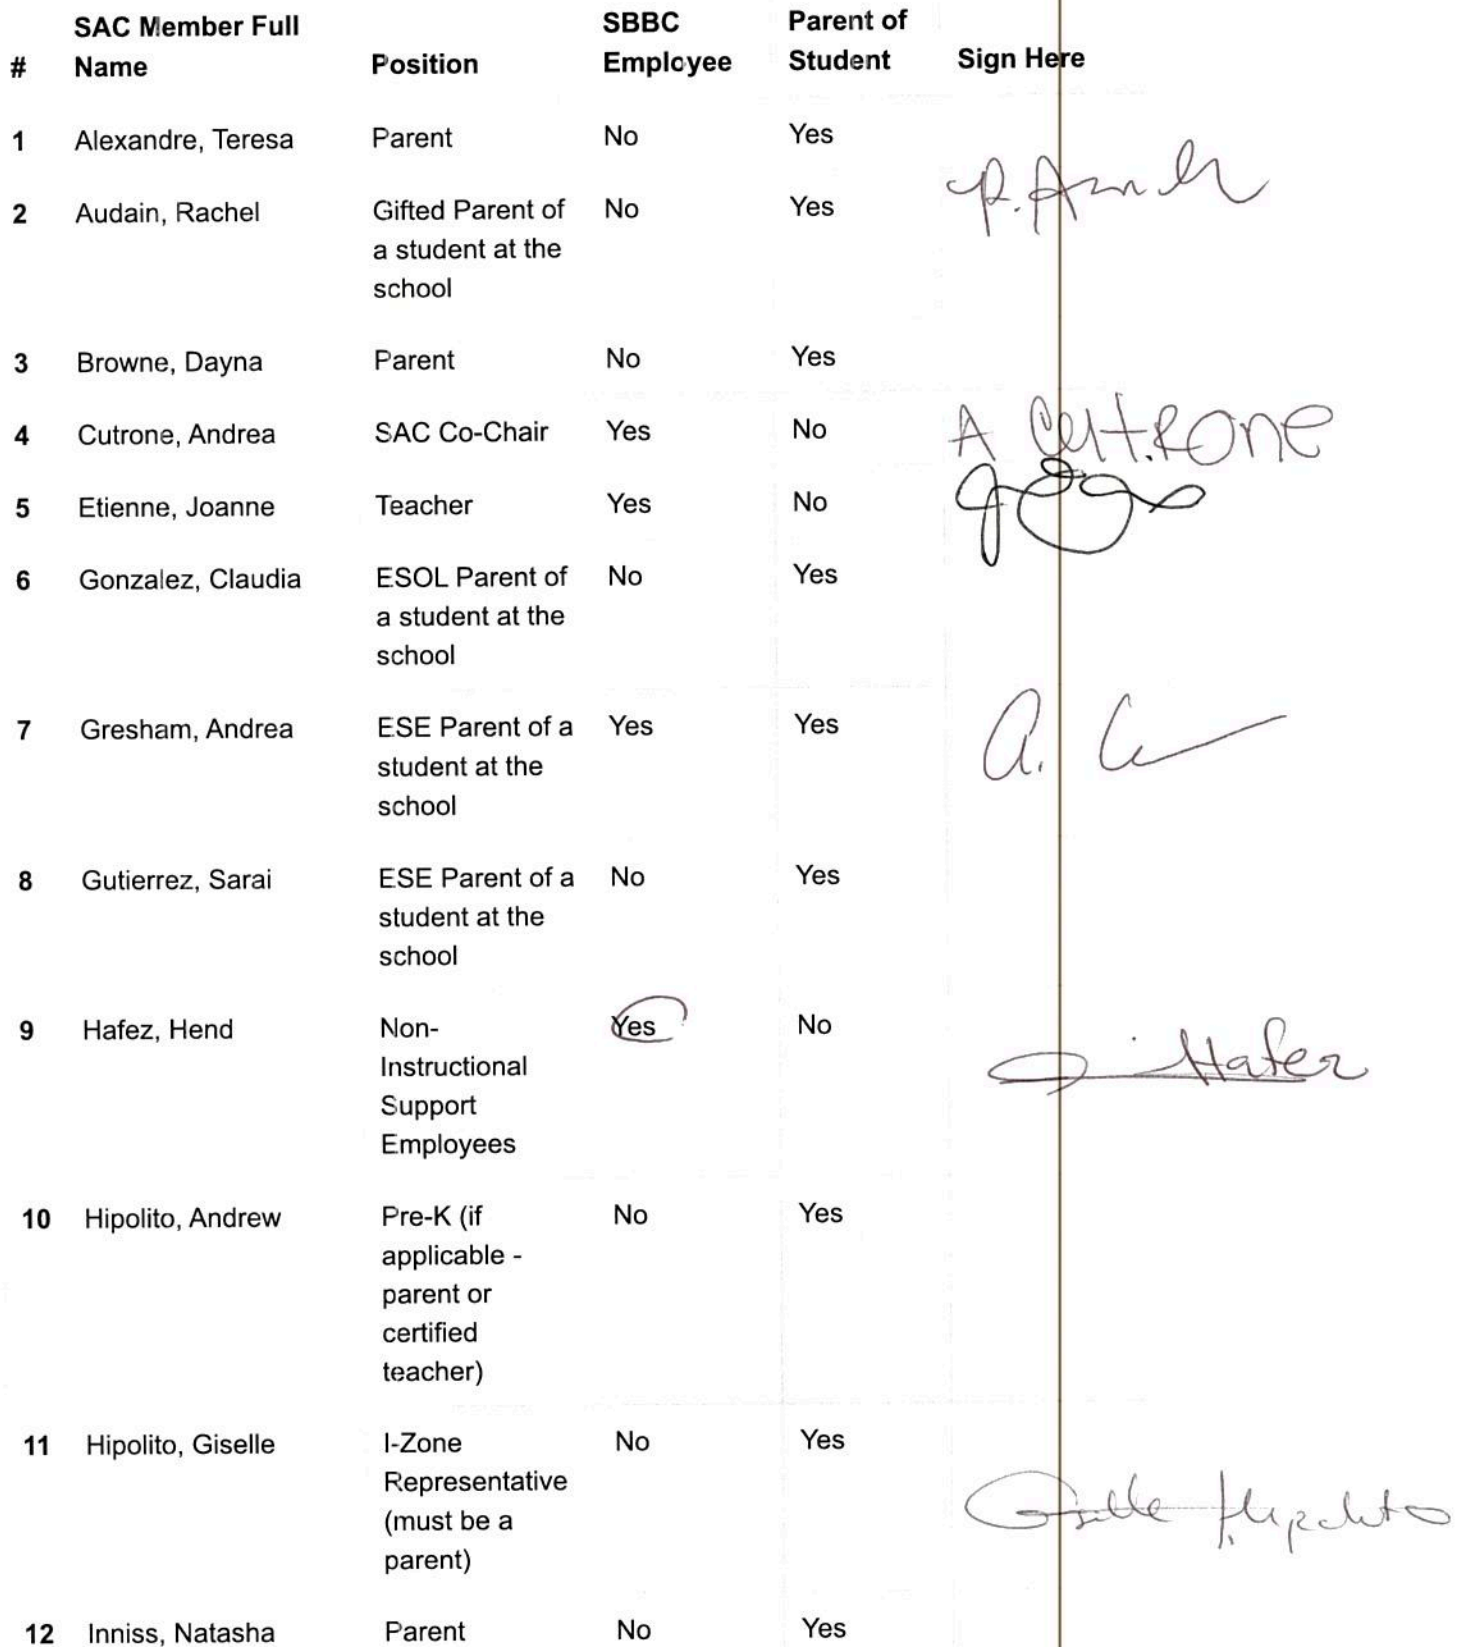 # SAC Member Full Name Position SBBC Employee Parent of Student Sign Here
1 Alexandre, Teresa Parent No Yes
2 Audain, Rachel Gifted Parent of No Yes
a student at the
school
3 Browne, Dayna Parent No Yes
4 Cutrone, Andrea SAC Co-Chair Yes No A Cutrone
5 Etienne, Joanne Teacher Yes No
6 Gonzalez, Claudia ESOL Parent of No Yes
a student at the
school
7 Gresham, Andrea ESE Parent of a Yes Yes A.
student at the
school
8 Gutierrez, Sarai ESE Parent of a No Yes
student at the
school
9 Hafez, Hend Non- Yes No
Instructional Hafez
Support
Employees
10 Hipolito, Andrew Pre-K (if No Yes
applicable -
parent or
certified
teacher)
11 Hipolito, Giselle I-Zone No Yes
Representative Giselle Hipolito
(must be a
parent)
12 Inniss, Natasha Parent No Yes